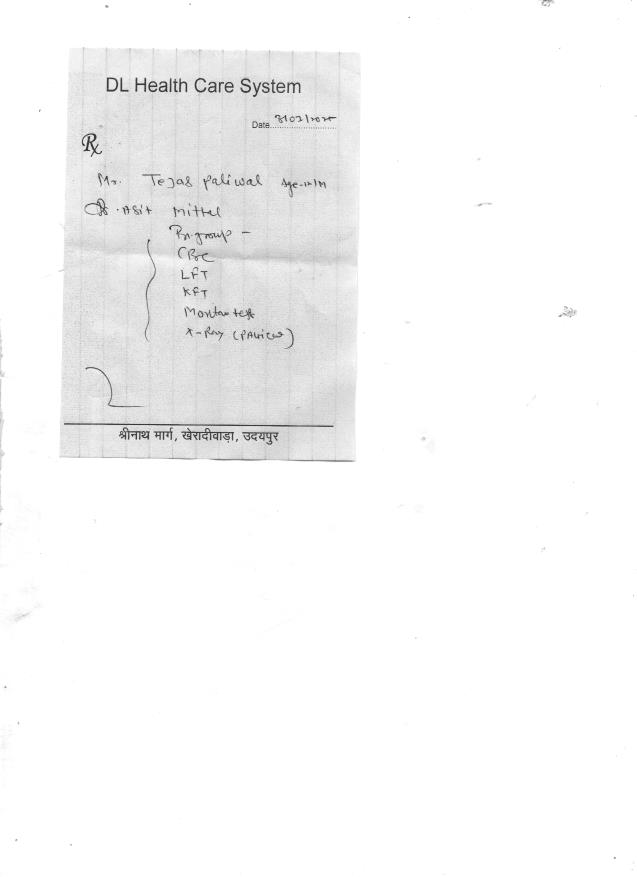 DL Health Care System
Date
Rx
Mr. Tejas Paliwal Age-12/M
Dr. Asit Mittal
Bl.group -
CBC
LFT
KFT
Montoux test
X-Ray (PA view)
श्रीनाथ मार्ग, खेरादीवाड़ा, उदयपुर